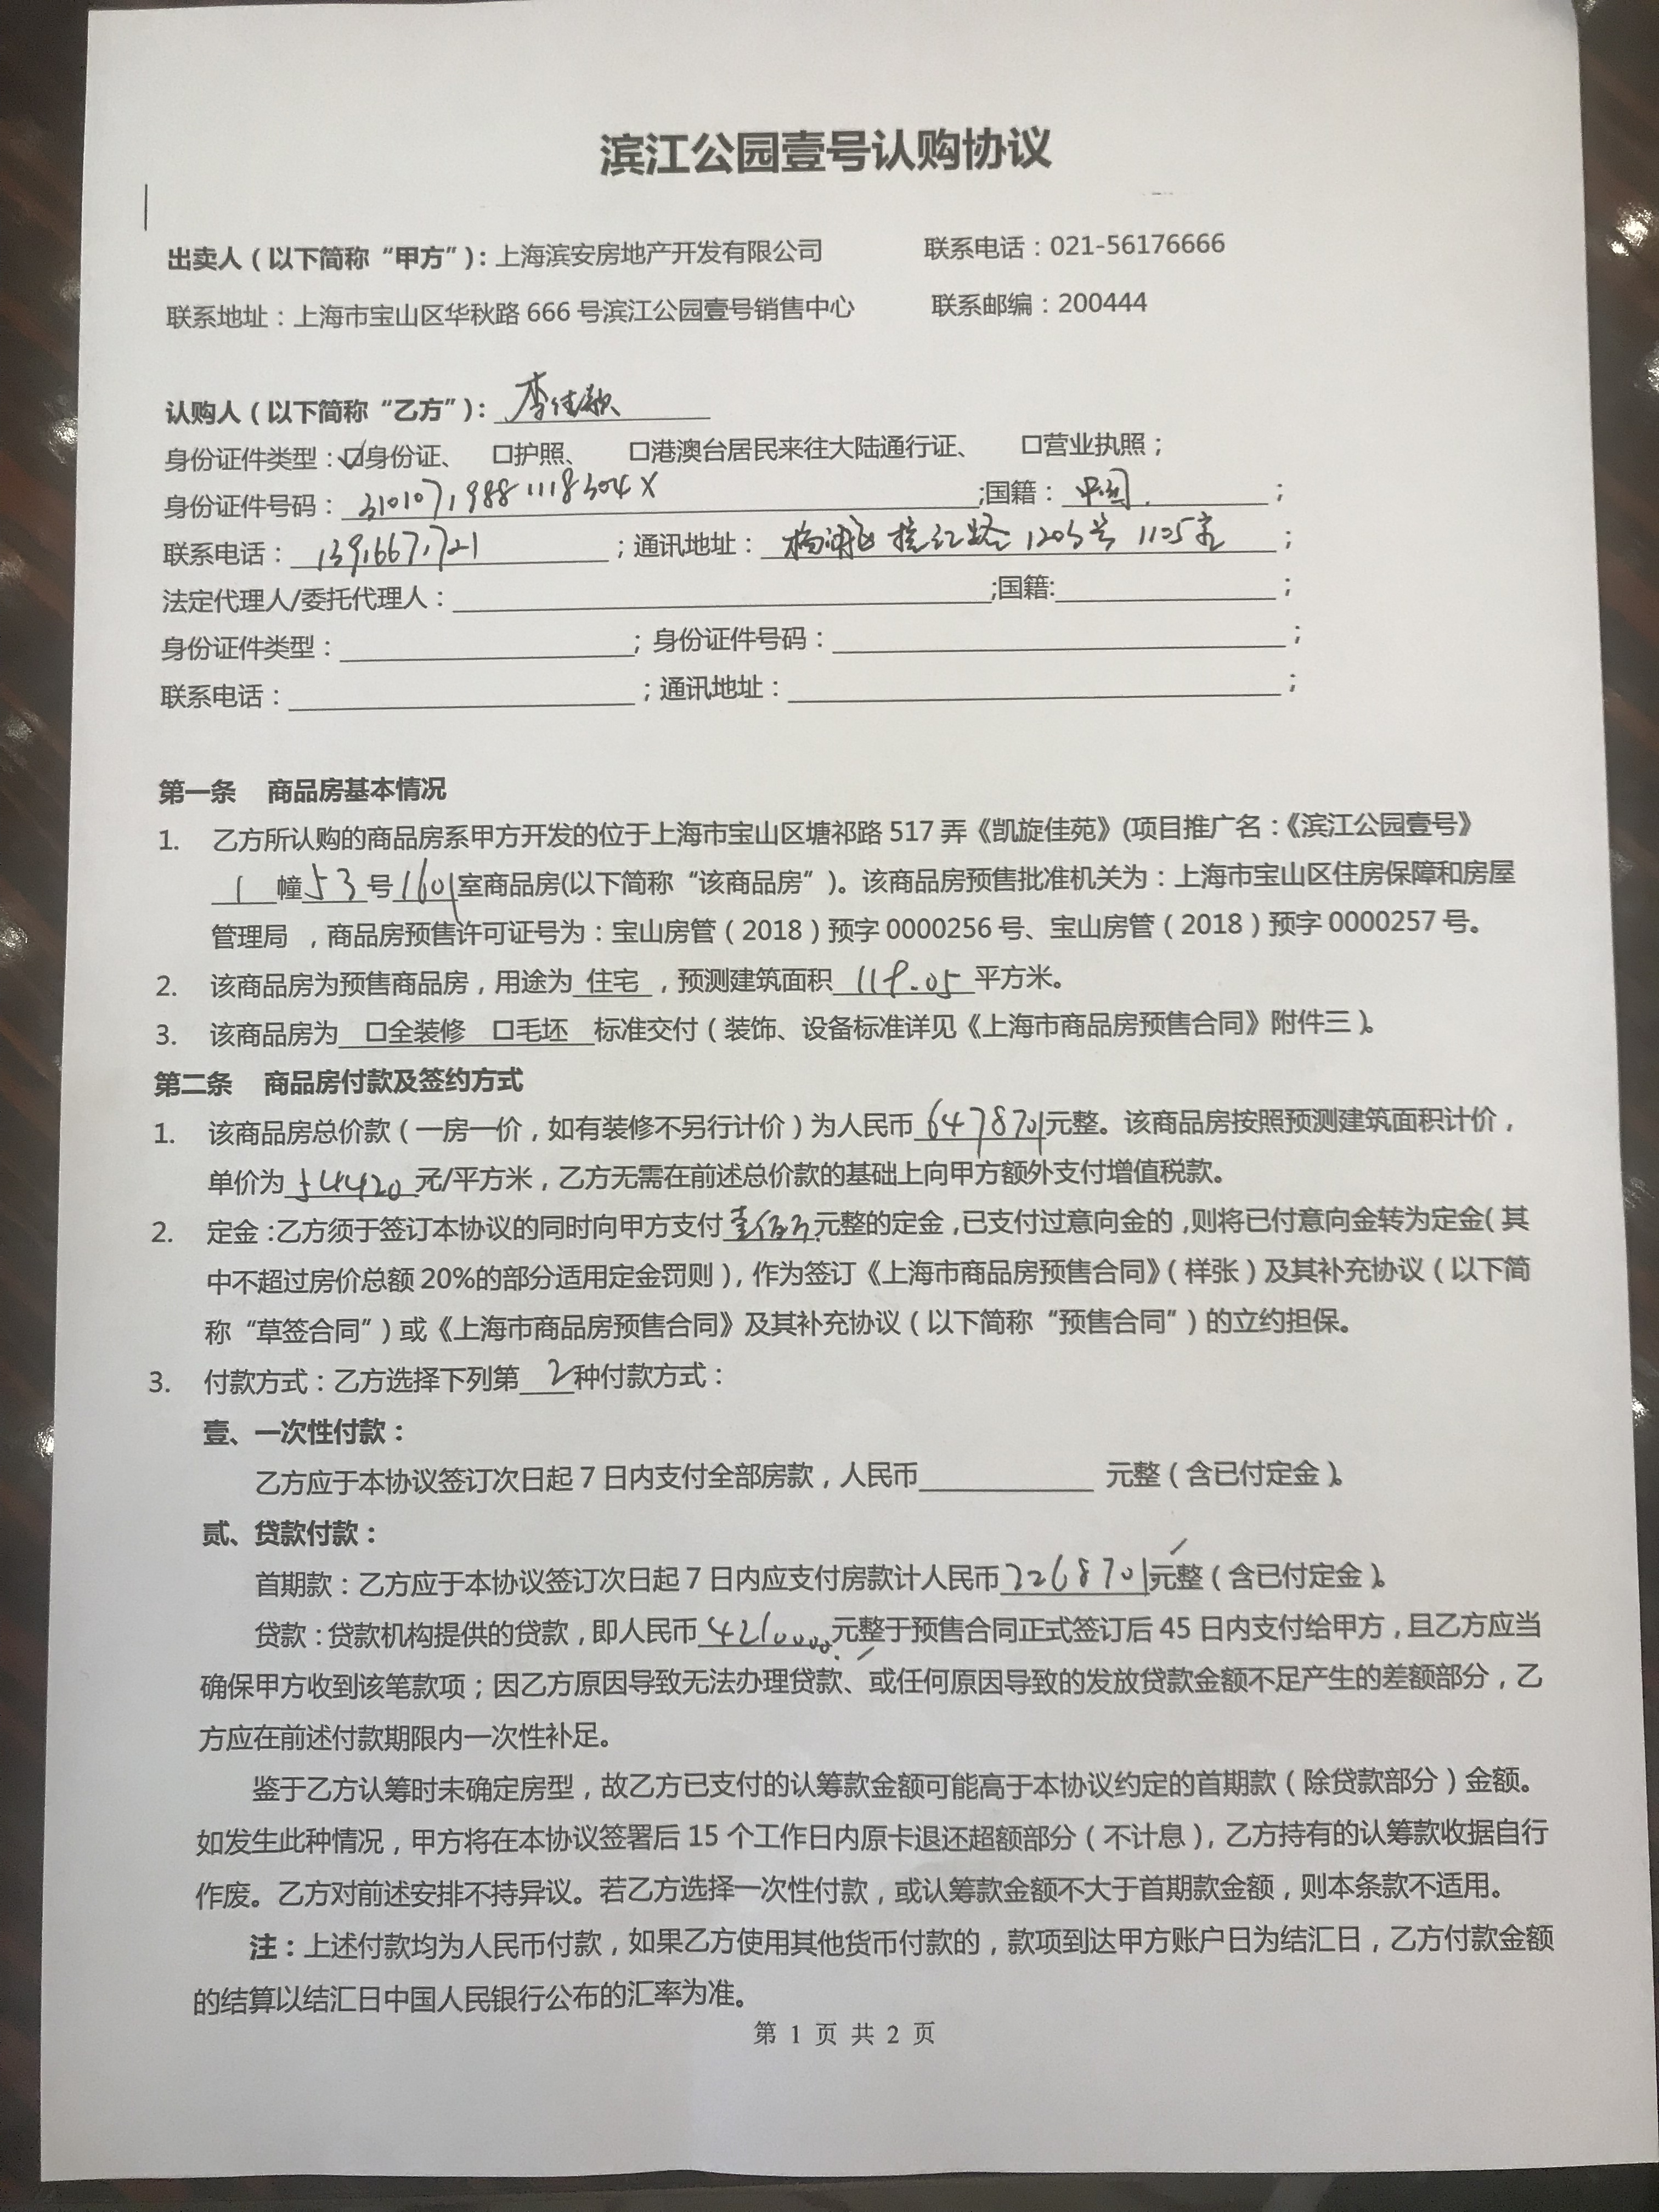 滨江公园壹号认购协议
出卖人（以下简称“甲方”）：上海滨安房地产开发有限公司 联系电话：021-56176666
联系地址：上海市宝山区华秋路 666 号滨江公园壹号销售中心 联系邮编：200444
认购人（以下简称“乙方”）：李佳颖
身份证件类型：☑身份证、 □护照、 □港澳台居民来往大陆通行证、 □营业执照；
身份证件号码：31010719881118304X ;国籍：中国 ；
联系电话：13916671721 ；通讯地址：杨浦区 路1203号1105室 ；
法定代理人/委托代理人： ;国籍: ；
身份证件类型： ；身份证件号码： ；
联系电话： ；通讯地址： ；
第一条 商品房基本情况
1. 乙方所认购的商品房系甲方开发的位于上海市宝山区塘祁路 517 弄《凯旋佳苑》(项目推广名：《滨江公园壹号》
1 幢 53 号 1601 室商品房(以下简称“该商品房”）。该商品房预售批准机关为：上海市宝山区住房保障和房屋
管理局 ，商品房预售许可证号为：宝山房管（2018）预字 0000256 号、宝山房管（2018）预字 0000257 号。
2. 该商品房为预售商品房，用途为 住宅 ，预测建筑面积 119.05 平方米。
3. 该商品房为 □全装修 □毛坯 标准交付（装饰、设备标准详见《上海市商品房预售合同》附件三）。
第二条 商品房付款及签约方式
1. 该商品房总价款（一房一价，如有装修不另行计价）为人民币 6478701 元整。该商品房按照预测建筑面积计价，
单价为 54420 元/平方米，乙方无需在前述总价款的基础上向甲方额外支付增值税款。
2. 定金：乙方须于签订本协议的同时向甲方支付 壹佰万 元整的定金，已支付过意向金的，则将已付意向金转为定金（其
中不超过房价总额 20%的部分适用定金罚则），作为签订《上海市商品房预售合同》（样张）及其补充协议（以下简
称“草签合同”）或《上海市商品房预售合同》及其补充协议（以下简称“预售合同”）的立约担保。
3. 付款方式：乙方选择下列第 2 种付款方式：
壹、一次性付款：
乙方应于本协议签订次日起 7 日内支付全部房款，人民币 元整（含已付定金）。
贰、贷款付款：
首期款：乙方应于本协议签订次日起 7 日内应支付房款计人民币 2268701 元整（含已付定金）。
贷款：贷款机构提供的贷款，即人民币 4210000 元整于预售合同正式签订后 45 日内支付给甲方，且乙方应当
确保甲方收到该笔款项；因乙方原因导致无法办理贷款、或任何原因导致的发放贷款金额不足产生的差额部分，乙
方应在前述付款期限内一次性补足。
鉴于乙方认筹时未确定房型，故乙方已支付的认筹款金额可能高于本协议约定的首期款（除贷款部分）金额。
如发生此种情况，甲方将在本协议签署后 15 个工作日内原卡退还超额部分（不计息），乙方持有的认筹款收据自行
作废。乙方对前述安排不持异议。若乙方选择一次性付款，或认筹款金额不大于首期款金额，则本条款不适用。
注：上述付款均为人民币付款，如果乙方使用其他货币付款的，款项到达甲方账户日为结汇日，乙方付款金额
的结算以结汇日中国人民银行公布的汇率为准。
第 1 页 共 2 页